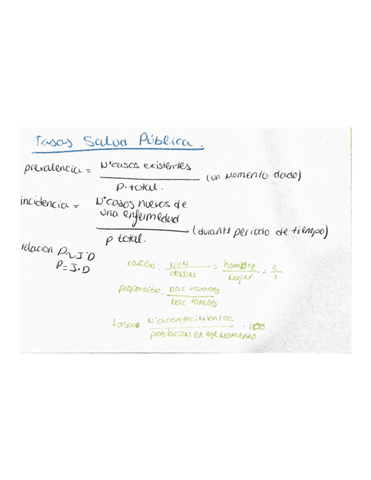 Tasas Salud Pública.
prevalencia = Nº casos existentes / P. total. (un momento dado)
incidencia = Nº casos nuevos de una enfermedad / P total. (durante periodo de tiempo)
relacion P≈I·D
P=I·D
razón: = hombre / mujer = 2 / 1
proporción: vac varones / vac totales
tasa = Nº acontecimientos / población en ese momento · 100